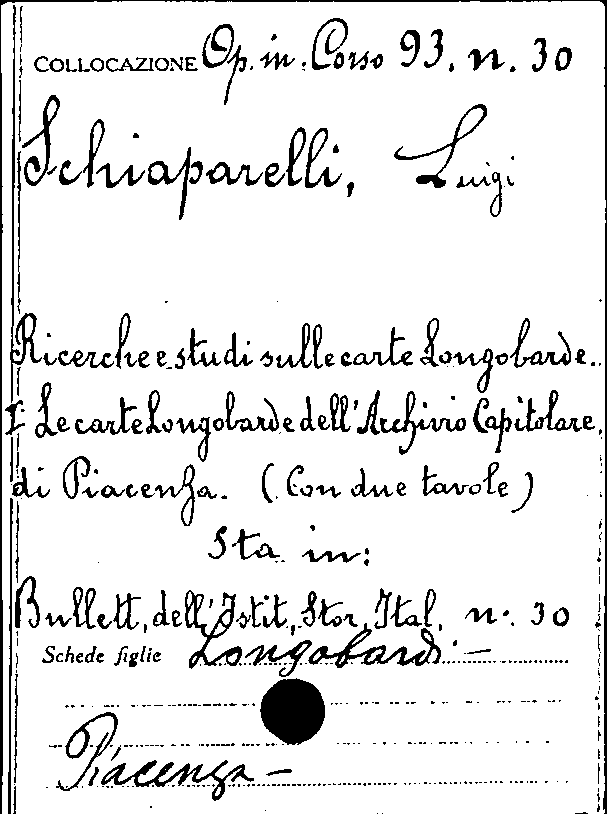 COLLOCAZIONE Op. in. Corso 93. n. 30
Schiaparelli, Luigi
Ricerche e studi sulle carte Longobarde.
I Le carte Longobarde dell'Archivio Capitolare,
di Piacenza. (Con due tavole)
Sta in:
Bullett, dell'Istit, Stor, Ital, n. 30
Schede figlie Longobardi -
Piacenza -